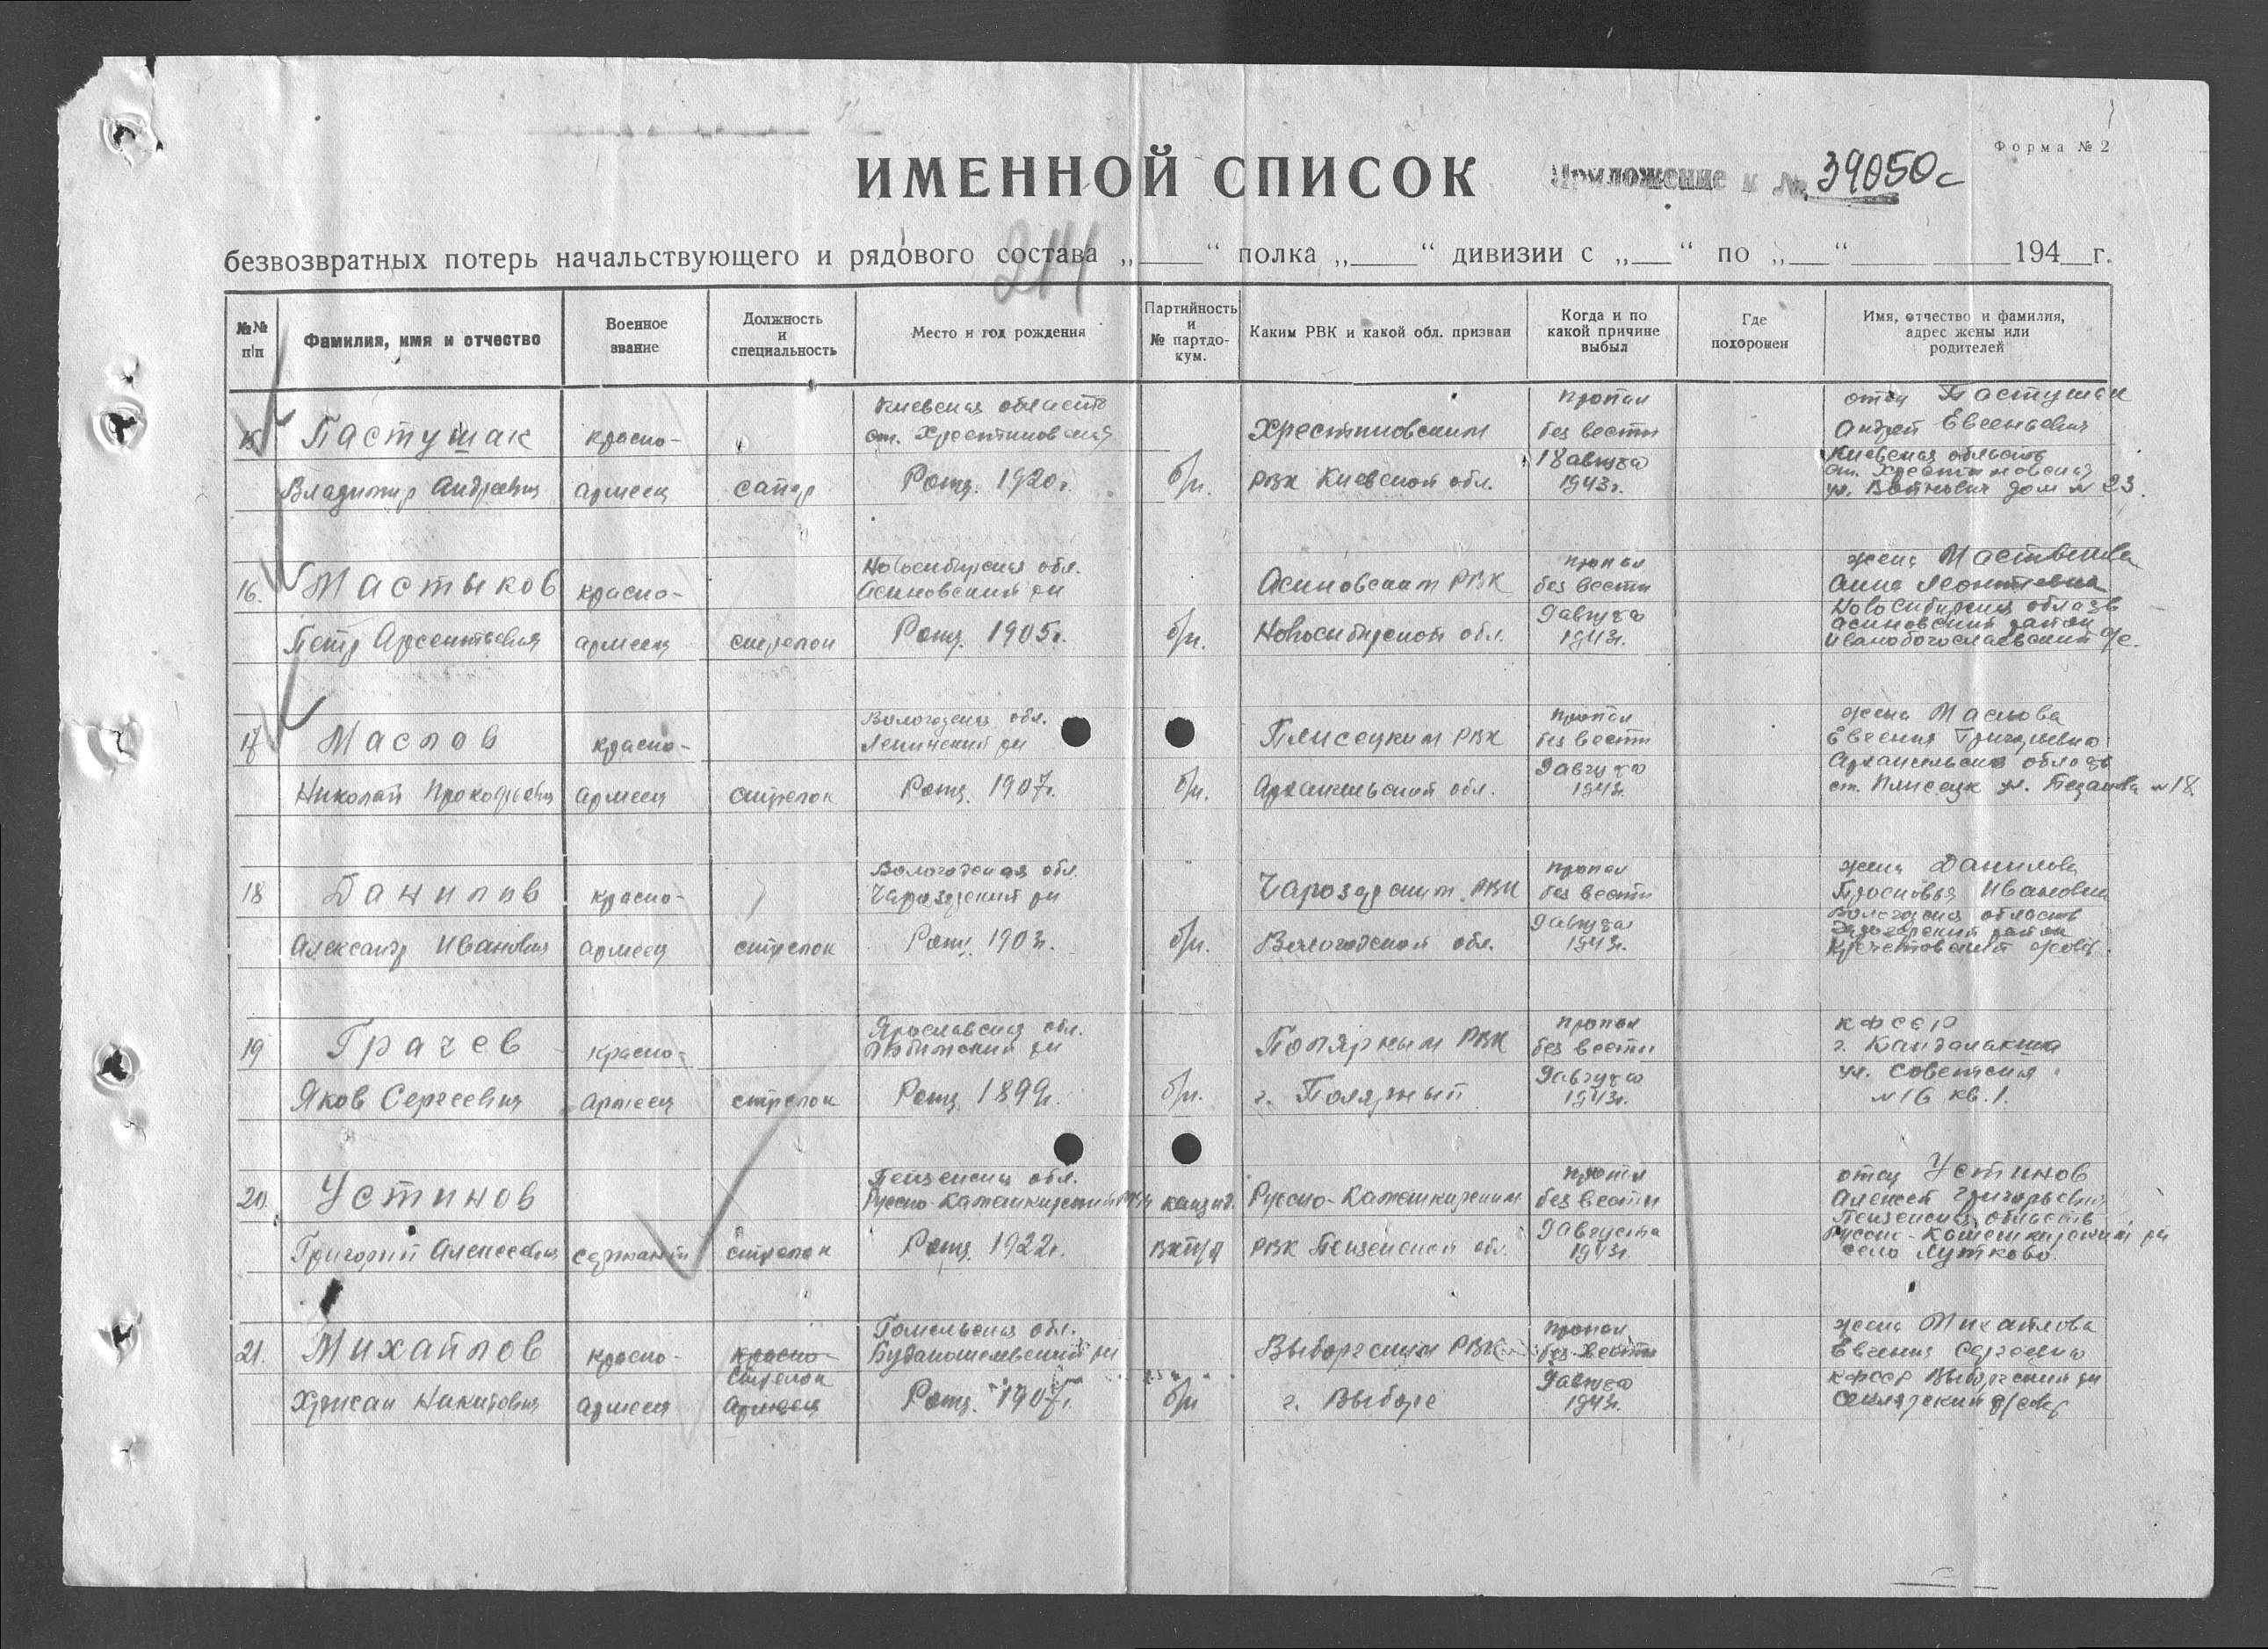 Форма № 2
ИМЕННОЙ СПИСОК
Приложение к № 39050с
безвозвратных потерь начальствующего и рядового состава „ “ полка „ “ дивизии с „ “ по „ “ 194 г.
214
№№ п/п
Фамилия, имя и отчество
Военное звание
Должность и специальность
Место и год рождения
Партийность и № партдокум.
Каким РВК и какой обл. призван
Когда и по какой причине выбыл
Где похоронен
Имя, отчество и фамилия, адрес жены или родителей
15
Пастушак
Владимир Андреевич
красно-
армеец
сапер
Киевская область
ст. Христиновская
Рожд. 1920г.
б/п.
Христиновским
РВК Киевской обл.
пропал
без вести
18 августа
1943г.
отец Пастушак
Андрей Евсеньевич
Киевская область
ст. Христиновская
дом № 23.
16.
Мастыков
Петр Арсентьевич
красно-
армеец
стрелок
Новосибирская обл.
Асиновский рн
Рожд. 1905г.
б/п.
Асиновским РВК
Новосибирской обл.
пропал
без вести
9 августа
1943г.
жена
Анна Леонтьевна
Новосибирская область
Асиновский район
Иванобогословский с/с.
17
Маслов
Николай Прокофьевич
красно-
армеец
стрелок
Вологодская обл.
Ленинский рн
Рожд. 1907г.
б/п.
Плисецким РВК
Архангельской обл.
пропал
без вести
9 августа
1943г.
жена Маслова
Евгения Григорьевна
Архангельская область
ст. Плисецк ул. № 18.
18
Данилов
Александр Иванович
красно-
армеец
стрелок
Вологодская обл.
Чарозерский рн
Рожд. 1903г.
б/п.
Чарозерским РВК
Вологодской обл.
пропал
без вести
9 августа
1943г.
жена Данилова
Просковья Ивановна
Вологодская область
район
Кречетовский
19
Грачев
Яков Сергеевич
красно-
армеец
стрелок
Ярославская обл.
Любимский рн
Рожд. 1899г.
б/п.
Полярным РВК
г. Полярный
пропал
без вести
9 августа
1943г.
КФССР
г. Кандалакша
ул. Советская
№ 16 кв. 1.
20.
Устинов
Григорий Алексеевич
сержант
стрелок
Пензенская обл.
Руссно-Камешкирский рн
Рожд. 1922г.
канд.
ВКП/б
Руссно-Камешкирским
РВК Пензенской обл.
пропал
без вести
9 августа
1943г.
отец Устинов
Алексей Григорьевич
Пензенская область
Руссно-Камешкирский рн
село Лутково.
21.
Михайлов
Никитович
красно-
армеец
красно-
стрелок
армеец
Гомельская обл.
Будакошелевский рн
Рожд. 1907г.
б/п
Выборгским РВК
г. Выборг
пропал
без вести
9 августа
1943г.
жена Михайлова
Евгения Сергеевна
КФССР Выборгский рн